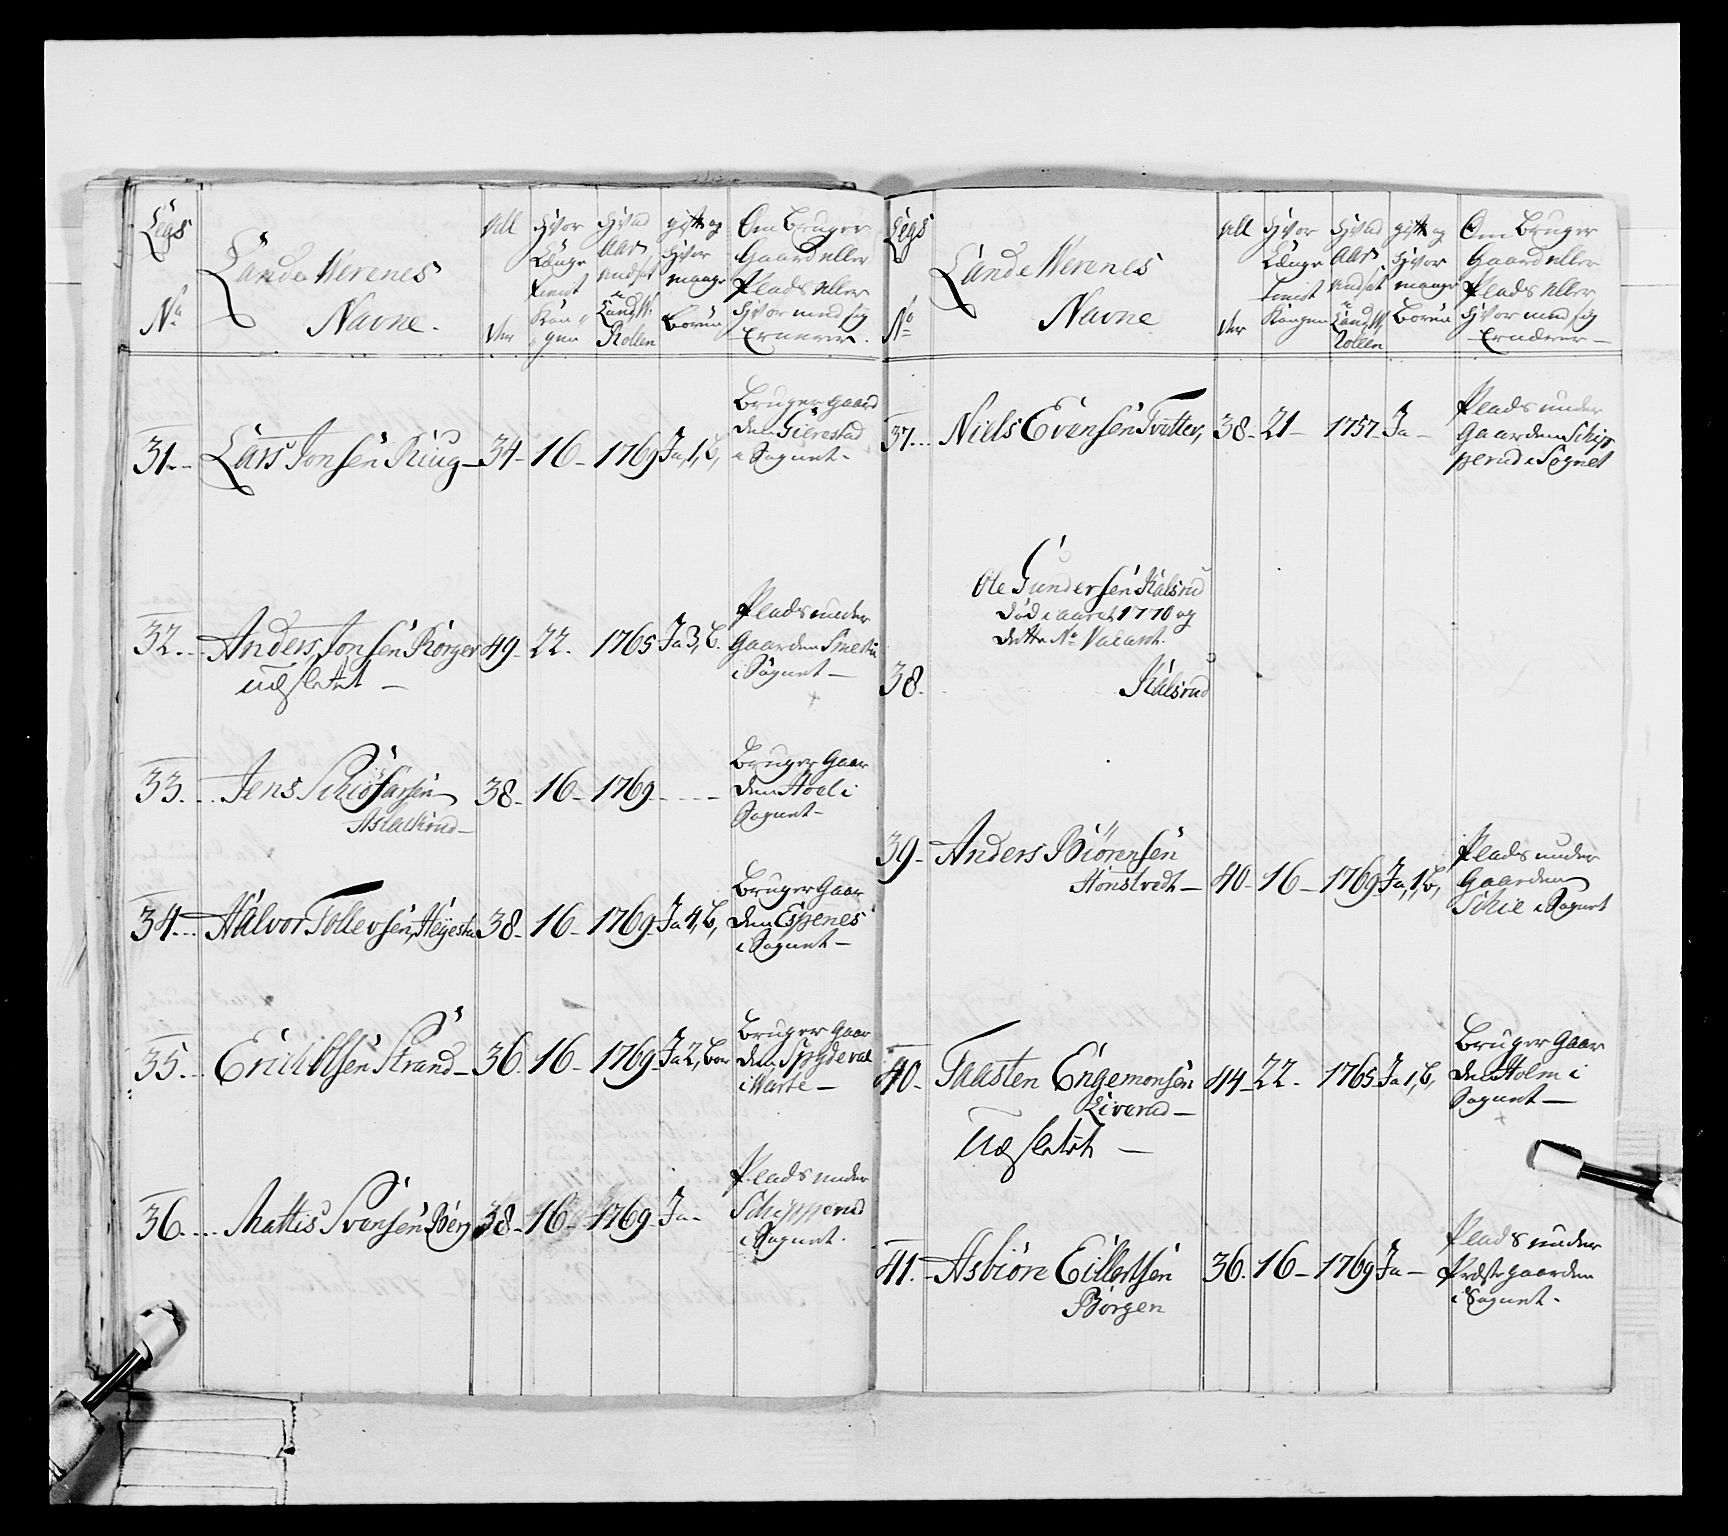 Legs
No
Lande Wernes
Navne.
All
der
Hvor
Længe
tient
Kon„
„gen
Hvad
Aar
indsat
i
Land W.
Rollen
gift og
Hvor
mange
Børn
Om Bruger
Gaard eller
Plads eller
Hvor med sig
Ernærer.
31. Lars Jonsen Ring 34 16 1769 Ja, 1, b,
Bruger Gaard
den Gierestad
i Sognet
32. Anders Jonsen Borger 49 22 1765 Ja 3, b.
Udsletet
Plads under
Gaarden
i Sognet
33. Jens 38 16 1769
Aslakrud
Bruger Gaar
den Hoel i
Sognet
34. Halvor Tollevsen, Heyesta 38 16 1769 Ja 4, b,
Bruger Gaar
den Espenes
i Sognet
35. Erich Olsen Strand 36 16 1769 Ja 2, bør
Bruger Gaar
den
i
36. Mattis Svensen Berg 38 16 1769 Ja
Plads under
Schipperud
i Sognet.
Legs
No
Lande Wernes
Navne
All
der
Hvor
Længe
tient
Kongen
Hvad
Aar
indsat
i
Land W,
Rollen
gift og
Hvor
mange
Børn
Om Bruger
Gaard eller
Plads eller
Hvor med sig
Ernærer
37. Niels Evensen Tvetter, 38 21 1757 Ja
Plads under
Gaarden Schip
perud i Sognet
Ole Gundersen Kalsrud
død i aaret 1770 og
dette No Vacant.
38. Kalsrud
39. Anders Biørensen
Hønstvedt 40 16 1769 Ja, 1, b,
Plads under
Gaarden
Schie i Sognet
40. Taasten Engemonsen 44 22 1765 Ja 1, b,
Liverud
Udsletet
Bruger Gaar
den Holm i
Sognet
41. Asbiørn Eillertsen 36 16 1769 Ja
Børgen
Plads under
Præstegaarden
i Sognet.